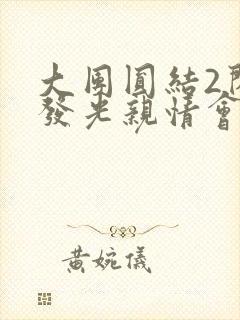 大團圓結2
發光親情會
黃婉儀